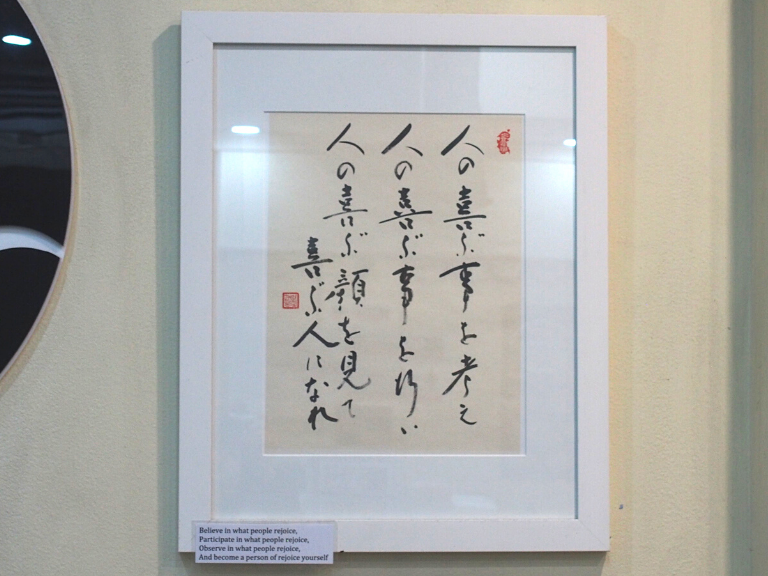 人の喜ぶ事を考え
人の喜ぶ事を行い
人の喜ぶ顔を見て
喜ぶ人になれ
Believe in what people rejoice,
Participate in what people rejoice,
Observe in what people rejoice,
And become a person of rejoice yourself